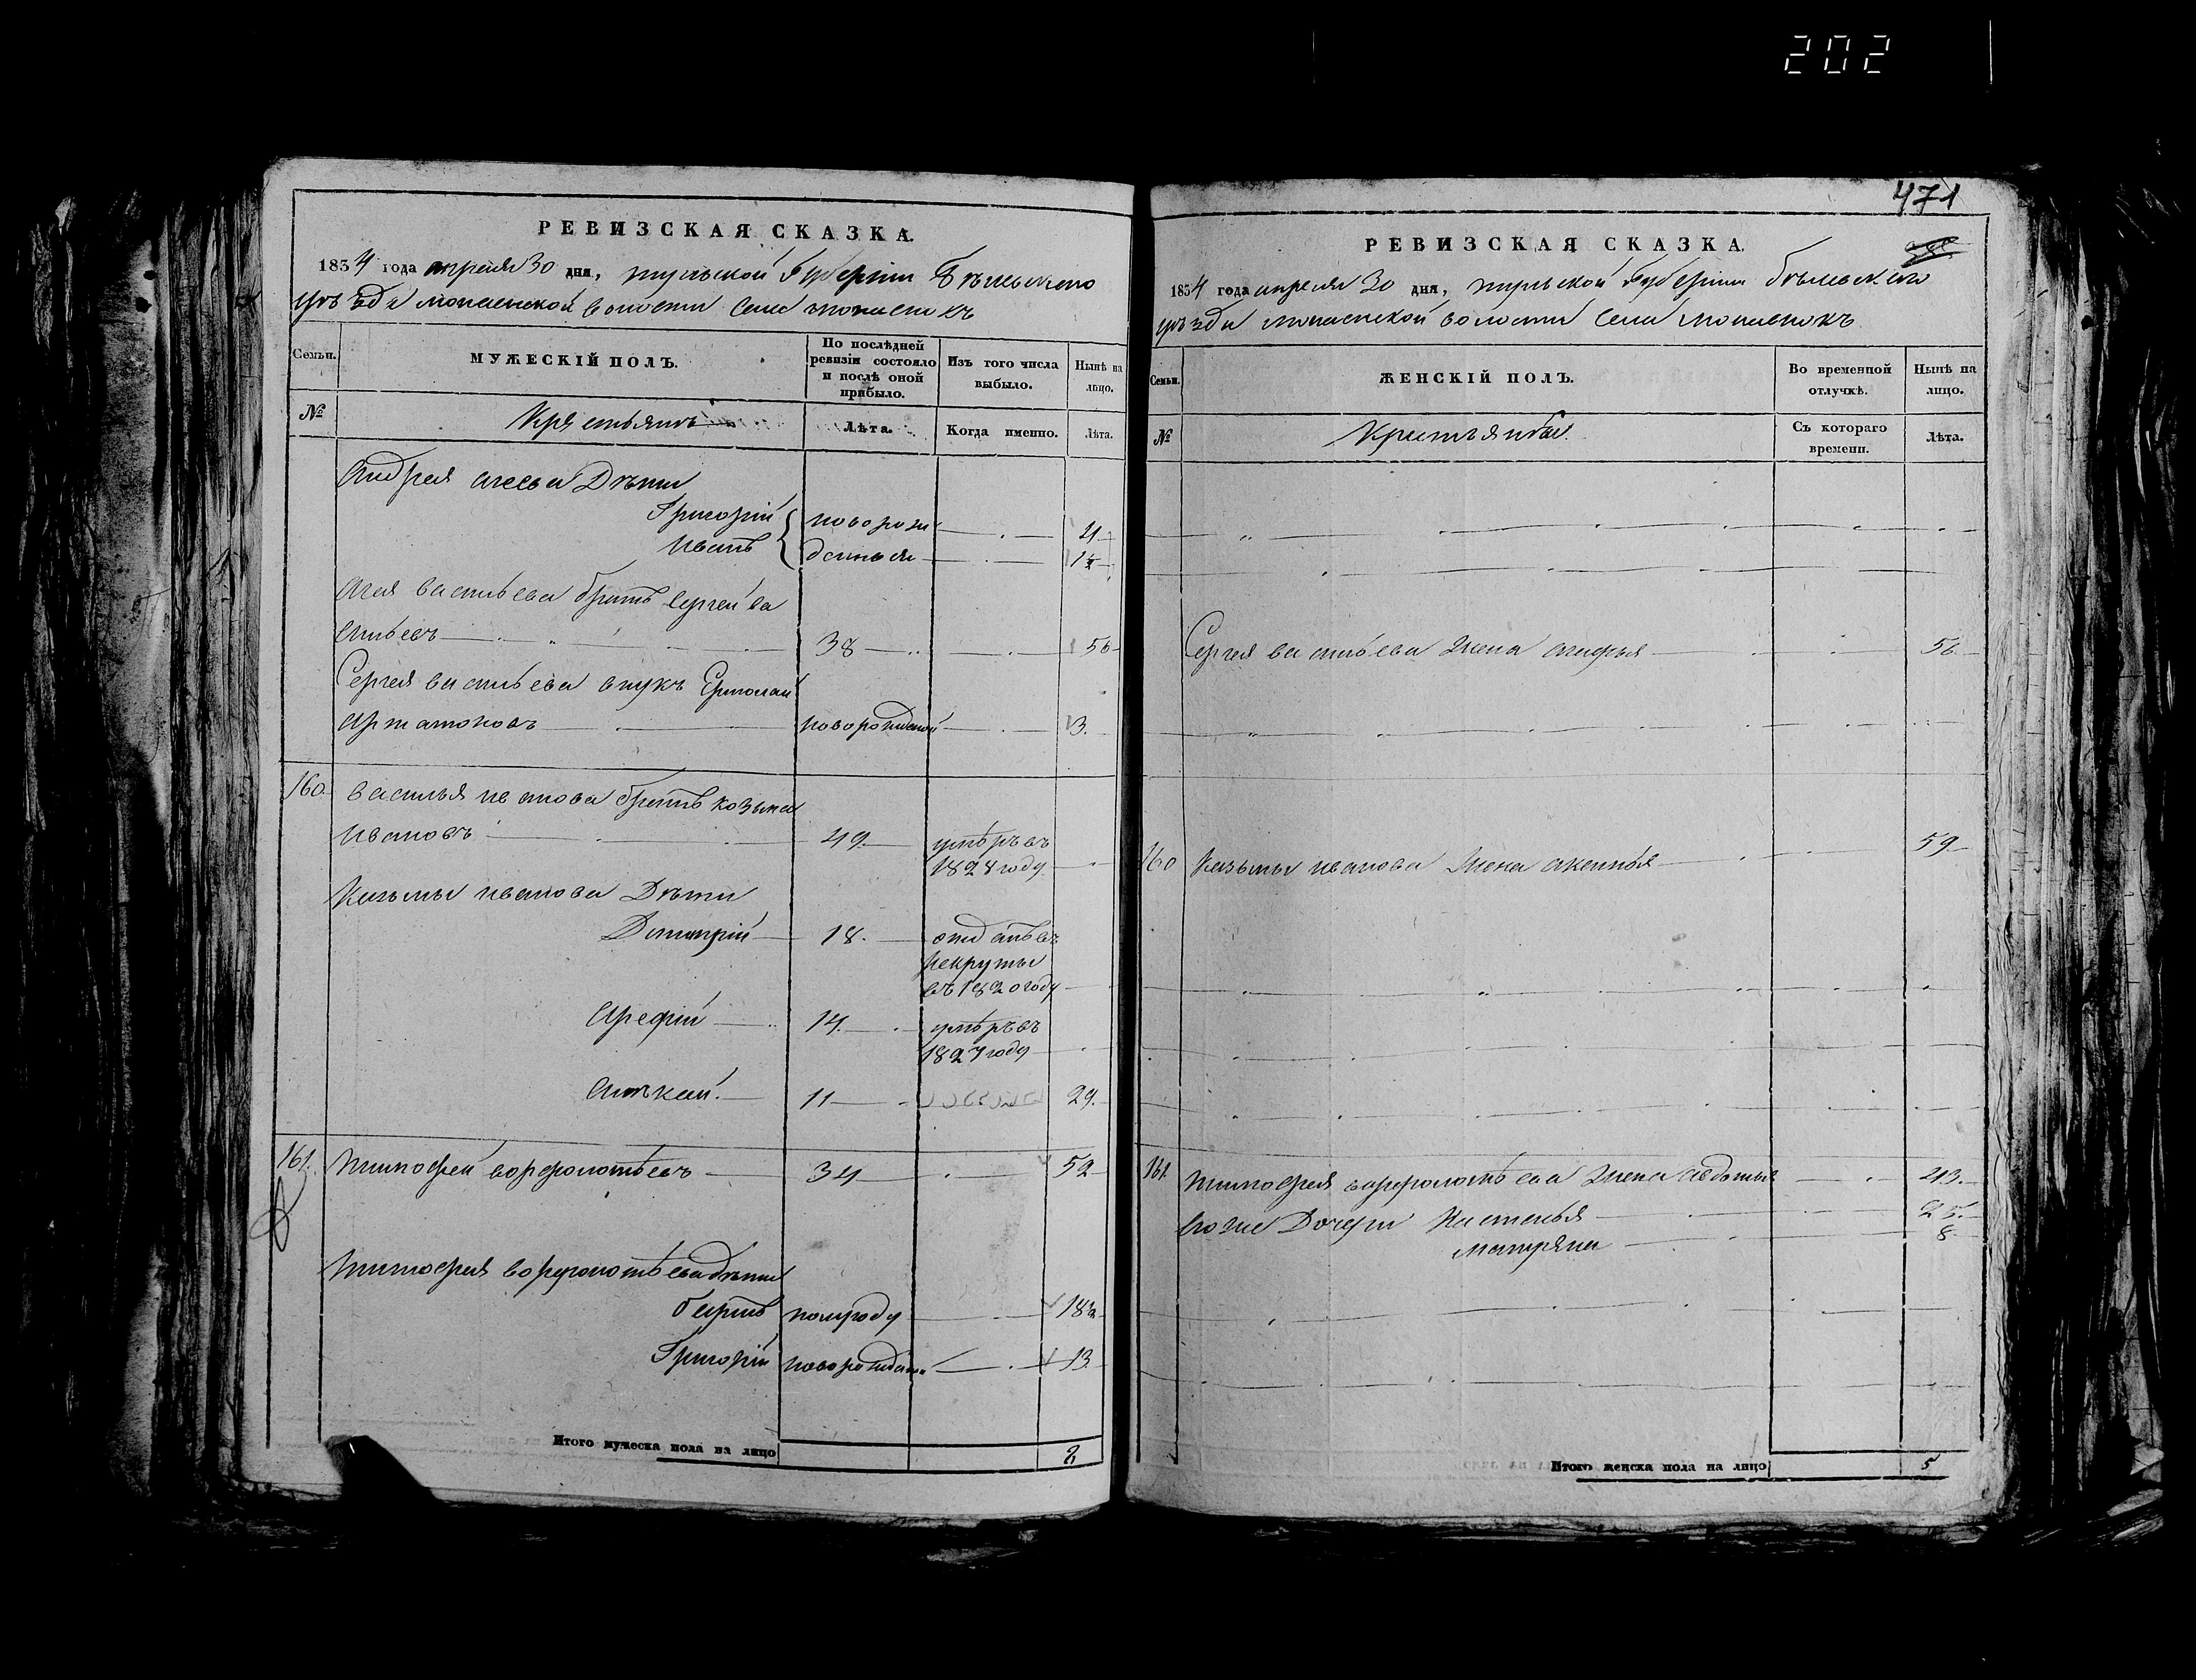 202
РЕВИЗСКАЯ СКАЗКА.
1834 года апреля 30 дня, тульской Губерніи Бѣлевского
уѣзда
волости Села
Семьи.
МУЖЕСКІЙ ПОЛЪ.
По послѣдней ревизіи состояло и послѣ оной прибыло.
Изъ того числа выбыло.
Нынѣ на лицо.
№
Лѣта.
Когда именно.
Лѣта.
Андрея агеева Дѣти
Григорій новорож 4
Иванъ денныя 1½
Агея васильева братъ Сергей ва
сильевъ 38 56
Сергея васильева внукъ Ермолай
Артамоновъ новорожденой 3.
160. василья иванова братъ козьма
Ивановъ 49. умеръ въ
1828 году
Козьмы иванова Дѣти
Димитрій 18. отданъ въ
рекруты
въ 1820 году
Арефій 14. умеръ въ
1827 году
Алѣксей. 11 29.
161. тимофей ворфоломѣевъ 34 52
тимофея ворфоломѣева дѣти
полугоду 18½
Григорій новорожден 13
Итого мужеска пола на лицо 8
471
РЕВИЗСКАЯ СКАЗКА.
1834 года апреля 30 дня, тульской Губерніи бѣлевского
уѣзда волости Села
Семьи.
ЖЕНСКІЙ ПОЛЪ.
Во временной отлучкѣ.
Нынѣ на лицо.
№
Съ котораго времени.
Лѣта.
Сергея васильева жена агафья 56
160 Козьмы иванова жена аксинья 59
161. тимофея ворфоломѣева жена авдотья 43.
Ево же Дочери Настасья 25.
матряна 8
Итого женска пола на лицо 5